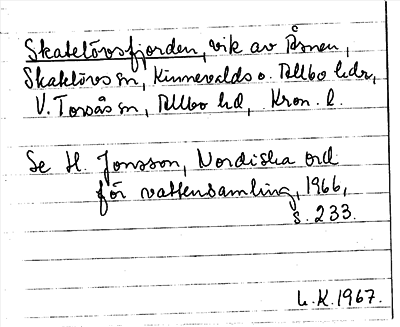 Skatelövsfjorden, vik av Åsnen,
Skatelövs sn, Kinnevalds o. Allbo hdr,
V. Torsås sn, Allbo hd, Kron. l.
Se H. Jonsson, Nordiska ord
för vattensamling, 1966,
s. 233.
L.K. 1967.